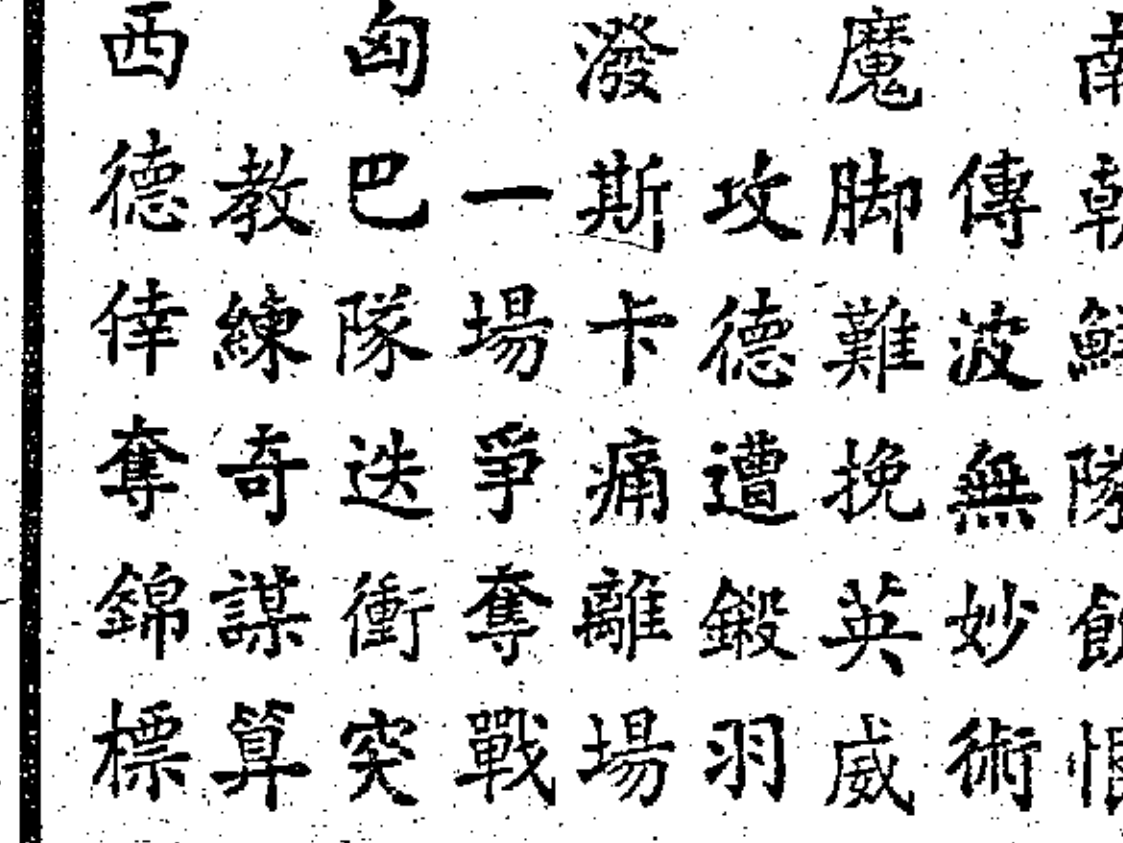 南朝鮮隊飲恨
傳波無妙術
魔脚難挽英威
攻德遭鍛羽
潑斯卡痛離場
一場爭奪戰
匈巴隊迭衝突
教練奇謀算
西德倖奪錦標